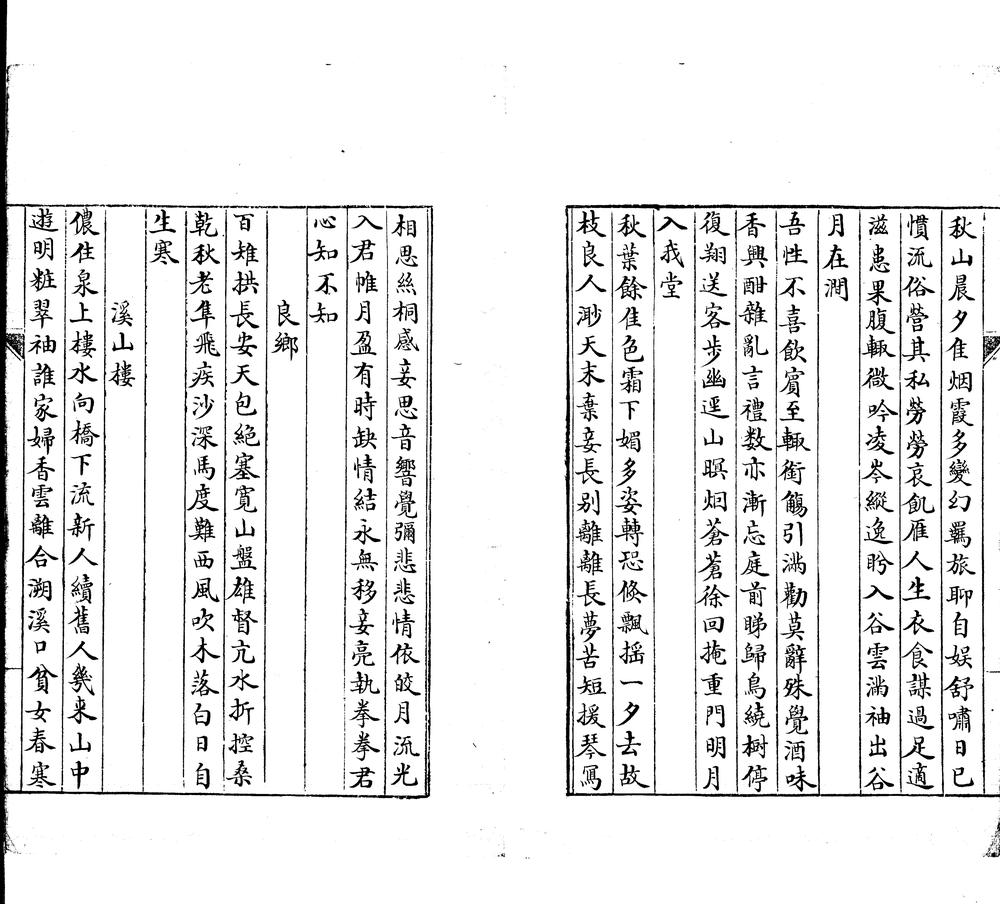 秋山晨夕佳烟霞多變幻羈旅聊自娱舒嘯日已
慣流俗營其私勞勞哀飢雁人生衣食謀過足適
滋患果腹輒微吟凌岑縱逸眄入谷雲滿袖出谷
月在澗
吾性不喜飲賓至輒銜觴引滿勸莫辭殊覺酒味
香興酣雜亂言禮数亦漸忘庭前睇歸鳥繞樹停
復翔送客步幽逕山暝烟蒼蒼徐回掩重門明月
入我堂
秋葉餘佳色霜下媚多姿轉恐倏飄揺一夕去故
枝良人渺天末棄妾長别離離長夢苦短援琴寫
相思絲桐感妾思音響覺彌悲悲情依皎月流光
入君帷月盈有時缺情結永無移妾亮執拳拳君
心知不知
良鄉
百雉拱長安天包絕塞寛山盤雄督亢水折控桑
乾秋老隼飛疾沙深馬度難西風吹木落白日自
生寒
溪山樓
儂住泉上樓水向橋下流新人續舊人幾来山中
遊明粧翠袖誰家婦香雲離合溯溪口貧女春寒